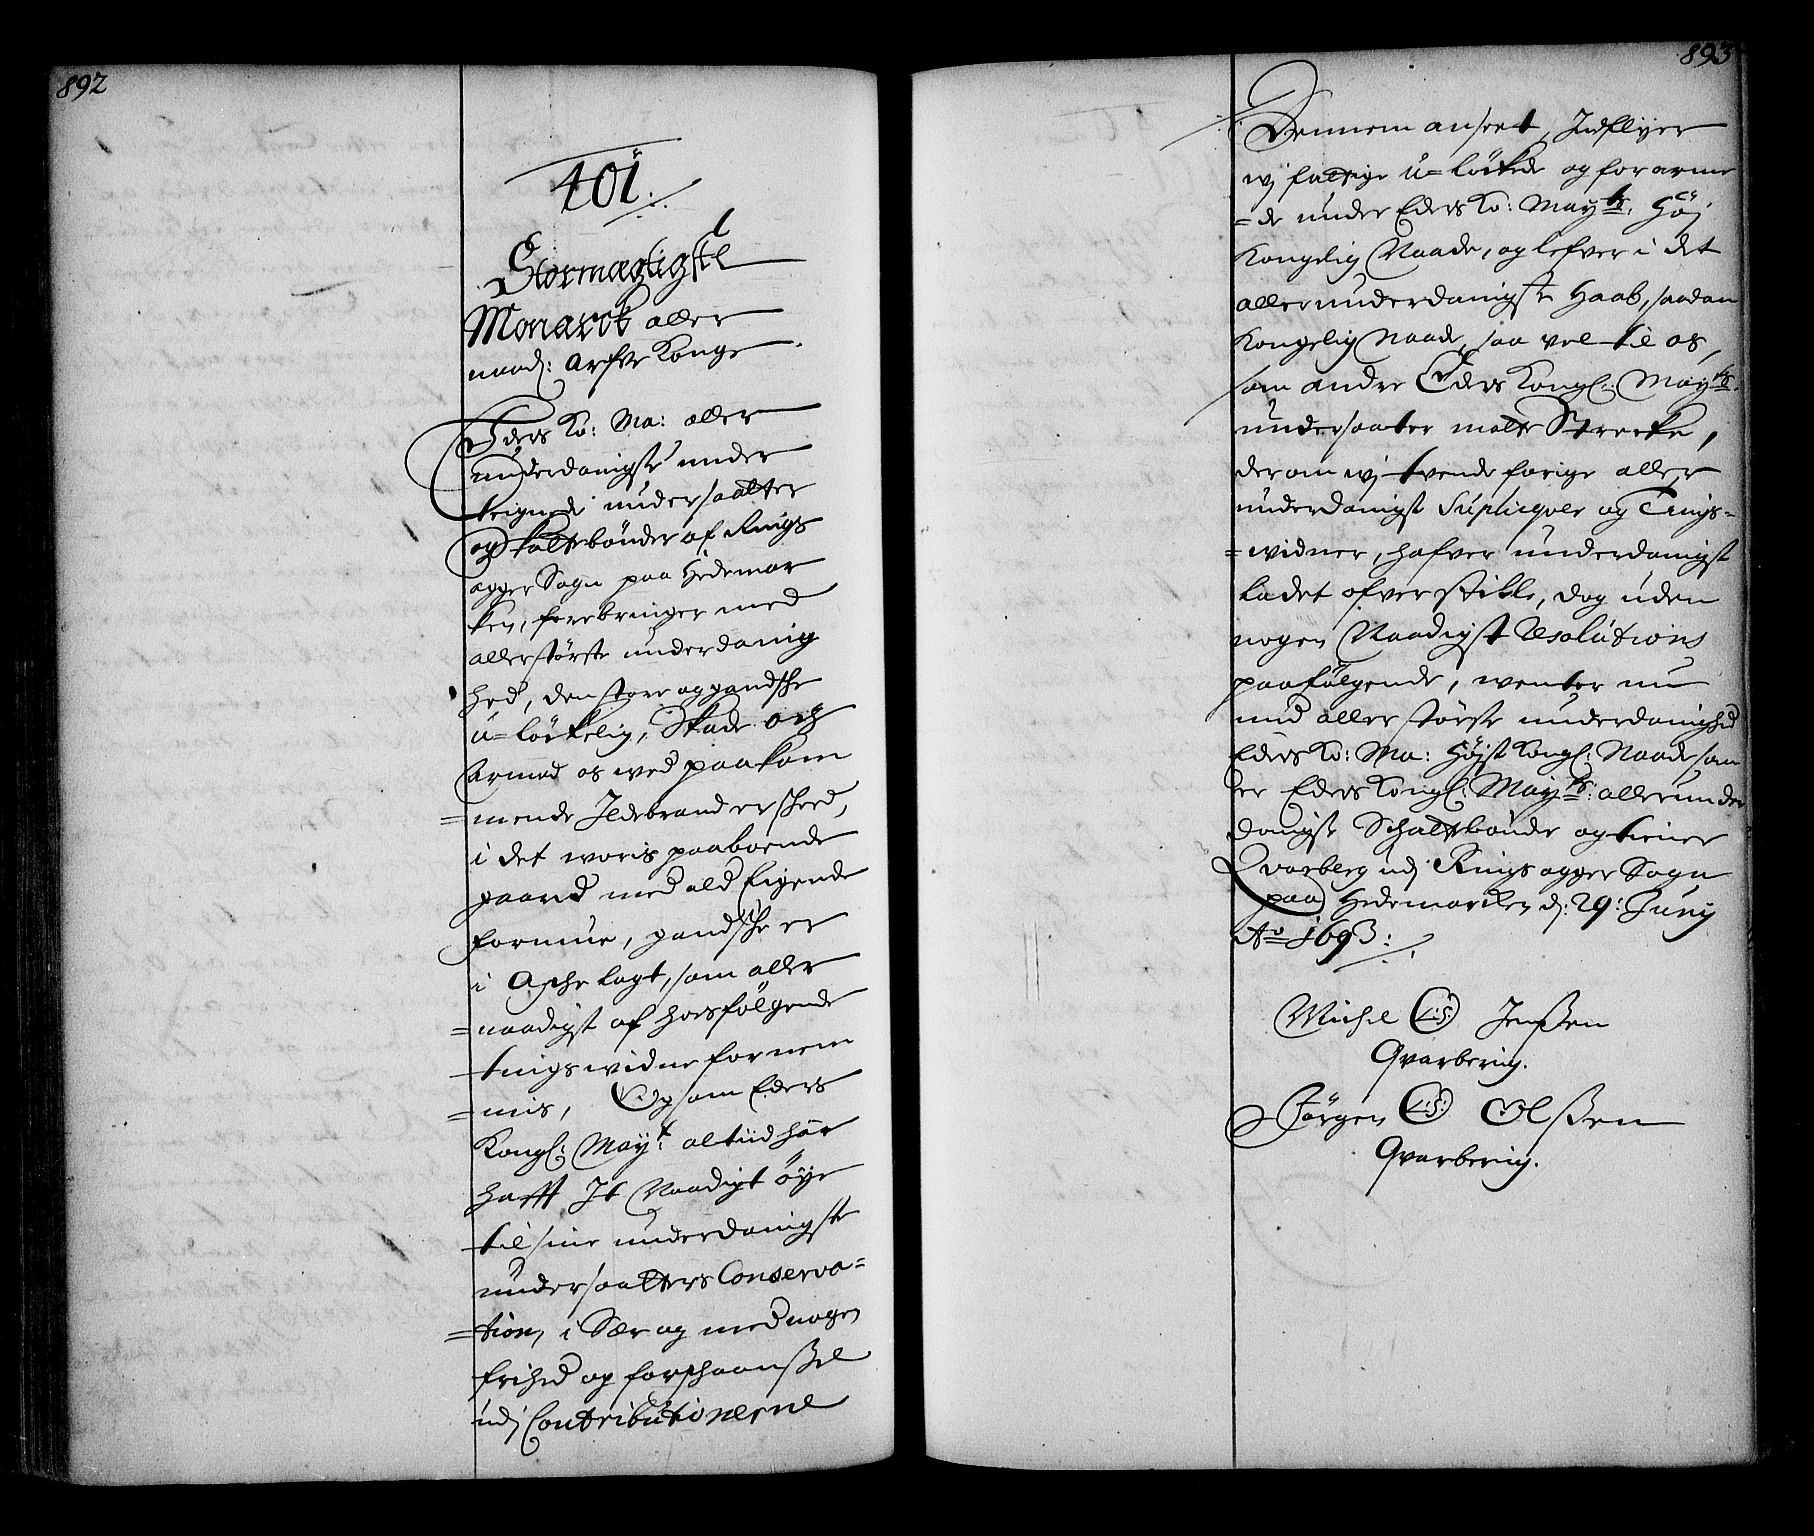 892
401
Stormægtigste
Monarch aller
naad: Arfve Konge
Eders Ko: Ma: aller
underdanigste under
teignede undersaatter
og skattebönder af Rings
agger Sogn paa Hedemar
ken, forebringer med
allerstörste underdanig
hed, den store og gandsche
u=löckelig, Skade och
Armod os wed paakom
=mende Jldebrand er scheed,
i det woris paaboende
gaard med ald Eigende
formue, gandsche er
i Asche lagt, som aller
=naadigst af hosfölgende
tingswidne fornem
=mis, Og som Eders
Kongl: Mayt: altiid har
hafft Jt Naadigt öye
til sine underdanigste
undersaatters Conserva=
=tion, i Sær og med nogen
frihed og forschaanssel
udj Contributionerne
893
Dennem anseet, Jndflyer
wj fattige u=löckede og forarme
=de under Eders Ko: Mayts: Höj
Kongelig Naade, og lefver i det
allerunderdanigste Haab, saadan
Kongelig Naade, saa vel til os,
som andre Eders Kongl: Mayts:
undersaatter motte Strecke,
derom wj tvende forige aller
underdanigst Supliqver og Tings=
=widner, hafver underdanigst
ladet ofverskikke, dog uden
nogen Naadigst Resolutions
paafölgende, wenter nu
med aller störste underdanighed
Eders Ko: Ma: Höjst Kongl: Naade som
er Eders Kongl: Mayts: allerunder
danigste Schattebönder og tiener
Qvarberg udj Ringsagger Sogn
paa Hedemarcken d: 29: Junij
Ao 1693:
Michel L:S: Jenssen
Qvarberig.
Jörgen L:S: Olssen
Qvarberig.